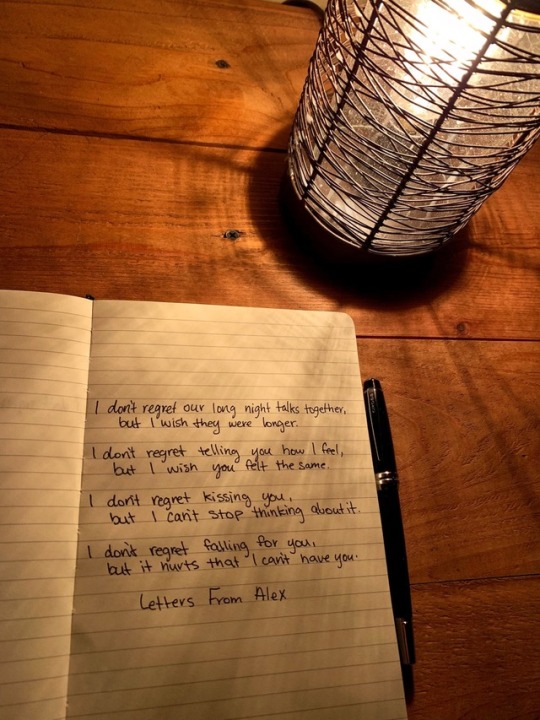 I don't regret our long night talks together,
but I wish they were longer.
I don't regret telling you how I feel,
but I wish you felt the same.
I don't regret kissing you,
but I can't stop thinking about it.
I don't regret falling for you,
but it hurts that I can't have you.
Letters From Alex